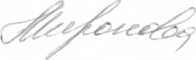 Миронова